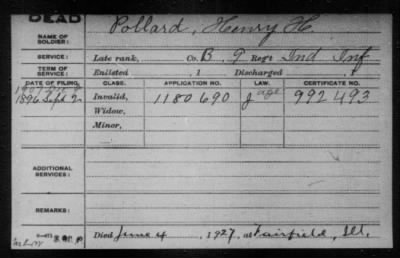 DEAD
NAME OF SOLDIER: Pollard, Henry H.
SERVICE: Late rank, Co. B. 9 Reg't Ind Inf
TERM OF SERVICE: Enlisted , 1 Discharged , 1
DATE OF FILING. CLASS. APPLICATION NO. LAW. CERTIFICATE NO.
1896 Sept 2 Invalid, 1180690 J age 992493
Widow,
Minor,
ADDITIONAL SERVICES:
REMARKS:
Died June 4, 1927, at Fairfield, Ill.